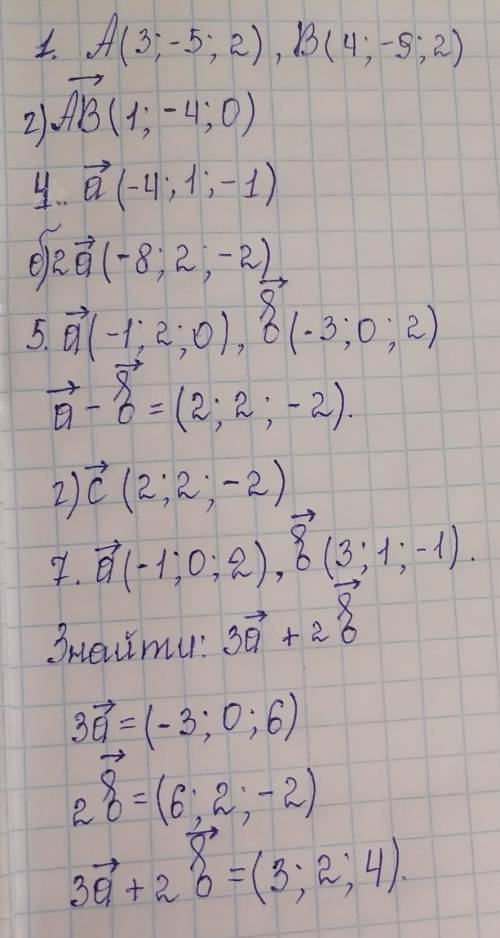 1. A(3;-5;2), B(4;-9;2)
г) AB⃗(1;-4;0)
4. a⃗(-4;1;-1)
б) 2a⃗(-8;2;-2)
5. a⃗(-1;2;0), b⃗(-3;0;2)
a⃗ - b⃗ = (2;2;-2).
г) c⃗(2;2;-2)
7. a⃗(-1;0;2), b⃗(3;1;-1).
Знайти: 3a⃗ + 2b⃗
3a⃗ = (-3;0;6)
2b⃗ = (6;2;-2)
3a⃗ + 2b⃗ = (3;2;4).